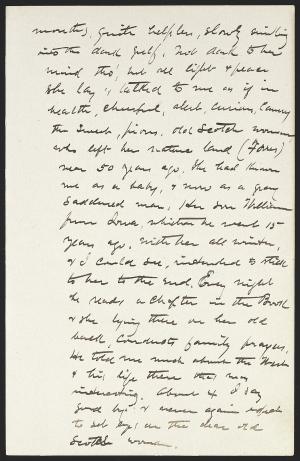 months, quite helpless, slowly sinking
into the dark gulf, not dark to her
mind tho', but all light & peace
She lay & talked to me as if in
health, cheerful, alert, curious, canny
the sweet, pious, old Scotch woman
who left her native land (Forres)
near 50 years ago. She had known
me as a baby, & now as a gray
saddened man. Her son William
from Iowa, whither he went 15
years ago, with her all winter,
& I could see, intended to stick
to her to the end. Every night
he reads a chapter in the Book
& she lying there on her old
back, conducts family prayers.
He told me much about the West
& his life there that was
interesting. About 4 I say
good bye & never again expect
to set eyes on the dear old
Scotch woman.